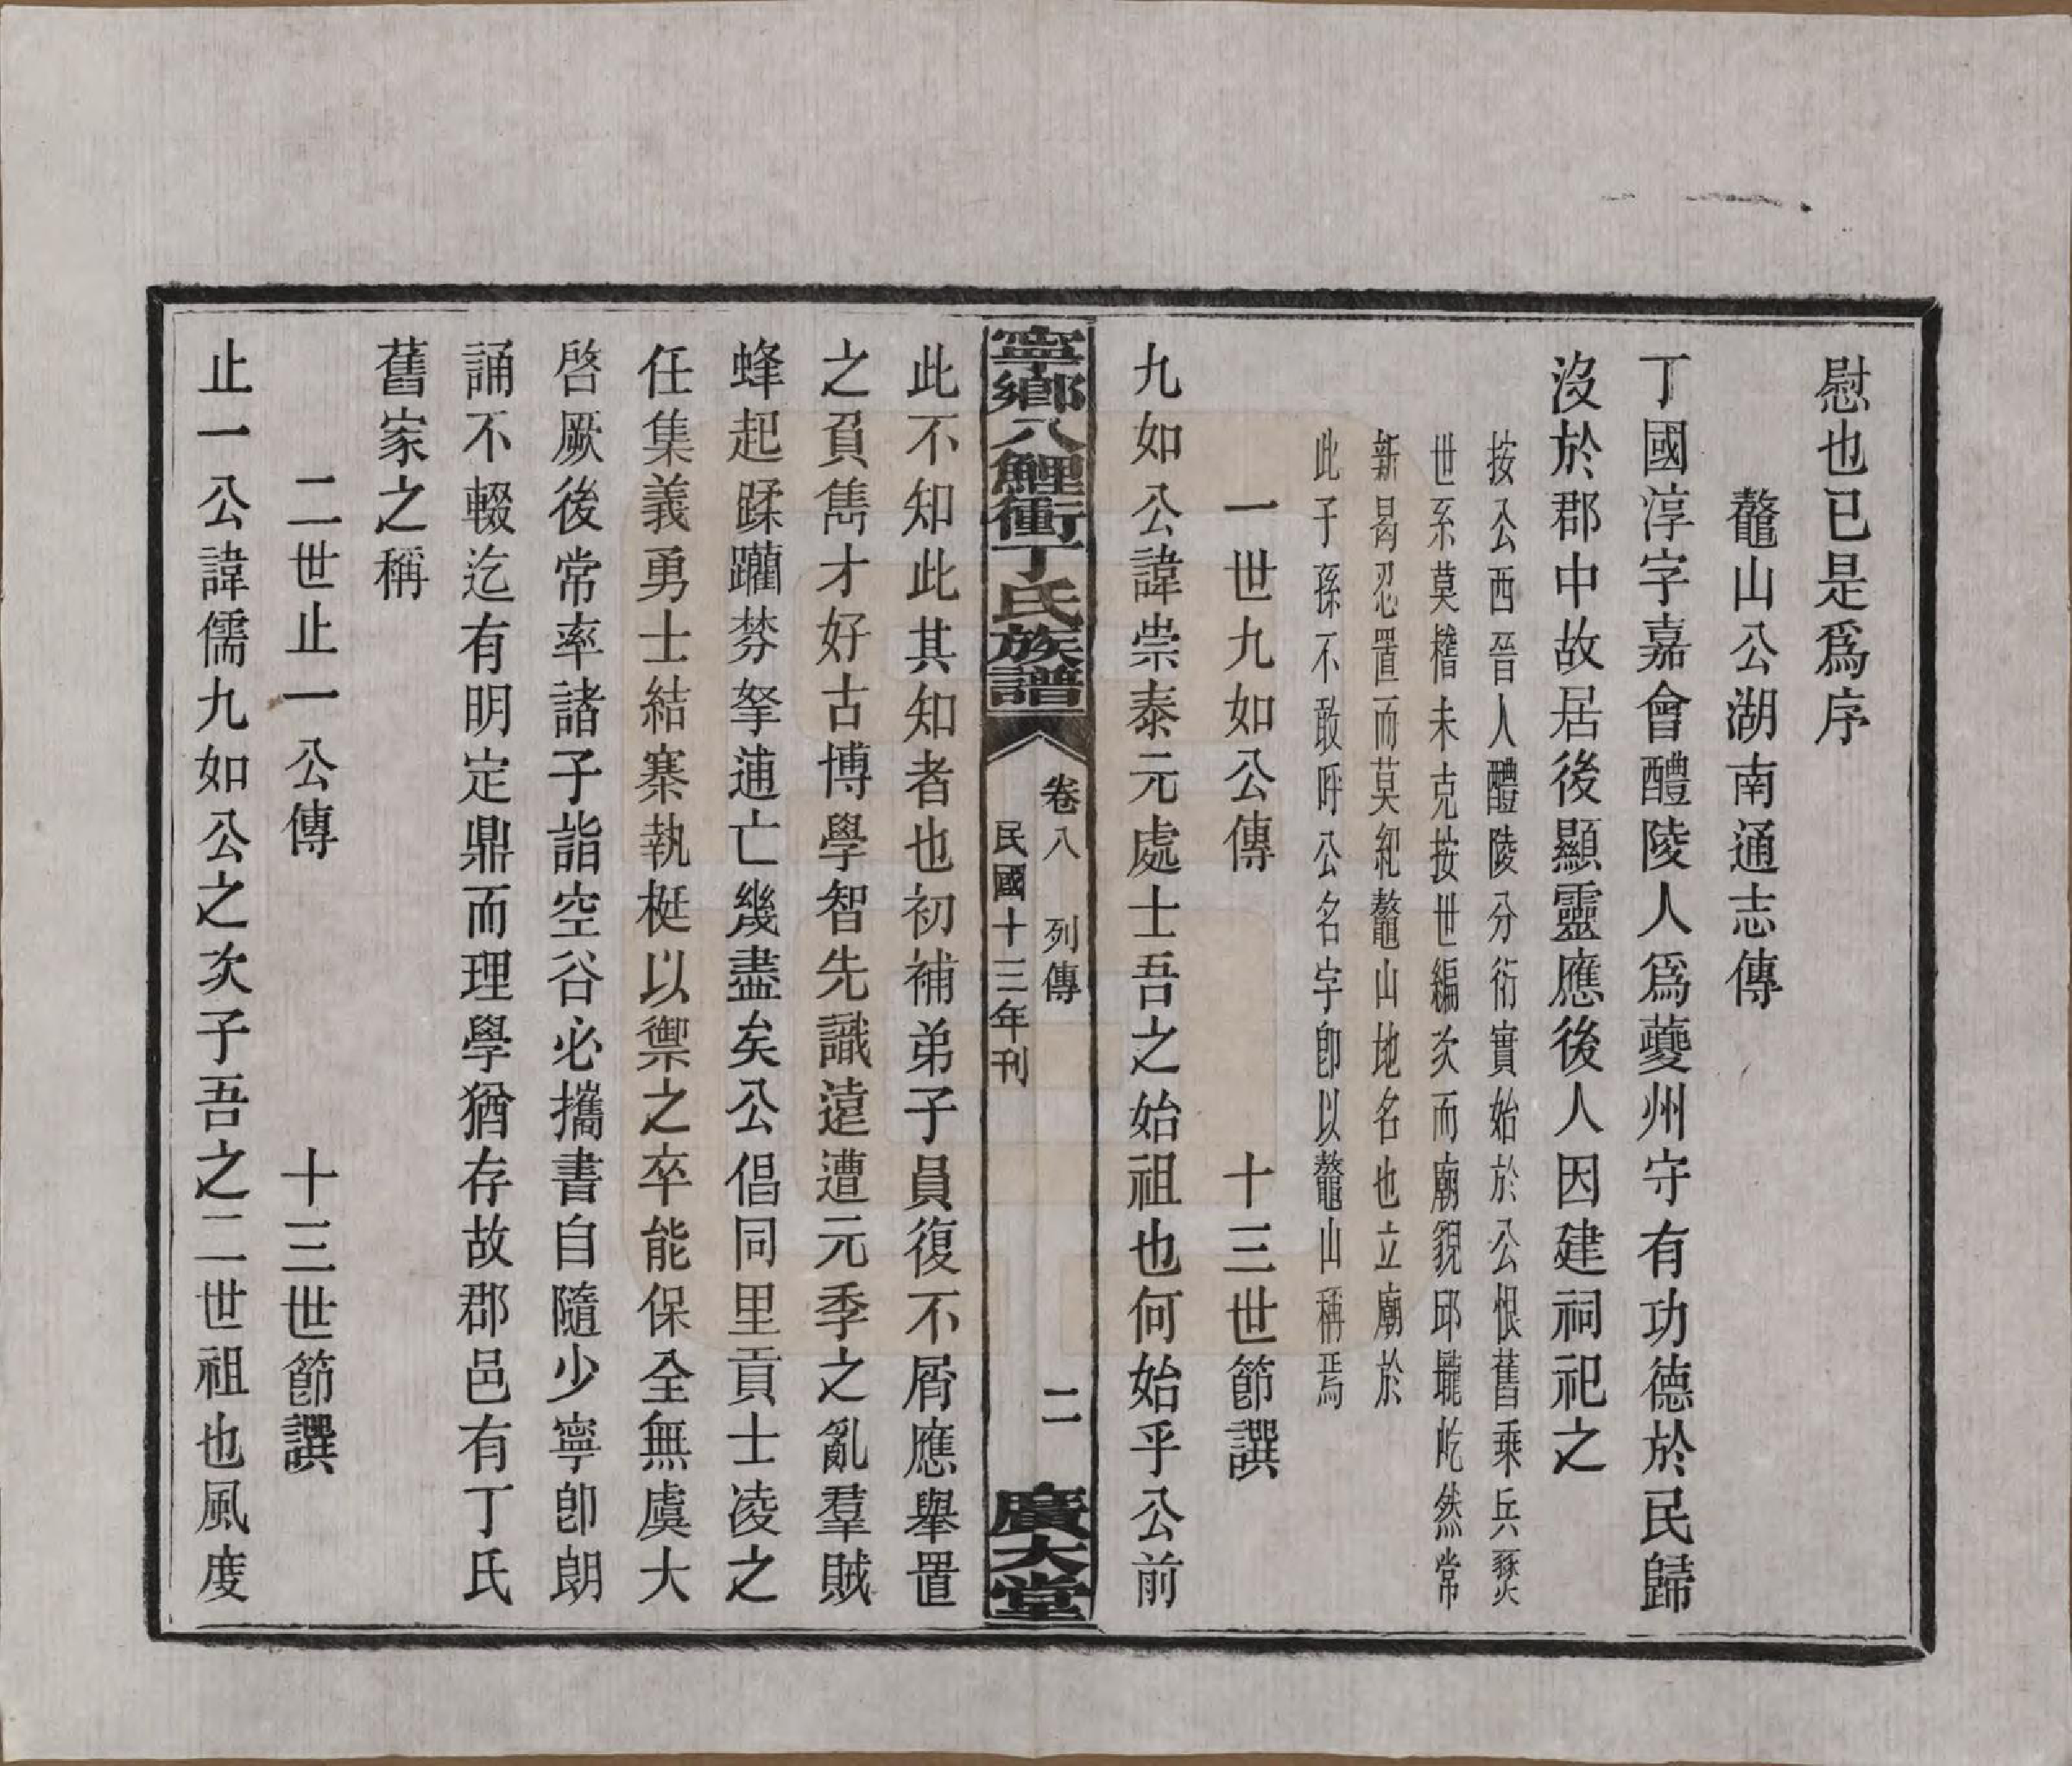 慰也已是爲序
鼇山公湖南通志傳
丁國淳字嘉會醴陵人爲夔州守有功德於民歸
沒於郡中故居後顯靈應後人因建祠祀之
按公西晉人醴陵分衍實始於公恨舊乘兵燹
世系莫稽未克按世編次而廟貌邱壠屹然常
新曷忍置而莫紀鼇山地名也立廟於
此子孫不敢呼公名字卽以鼇山稱焉
一世九如公傳 十三世節譔
九如公諱崇泰元處士吾之始祖也何始乎公前
寧鄉八鯉衝丁氏族譜
卷八 列傳 二
民國十三年刊
廣大堂
此不知此其知者也初補弟子員復不屑應舉置
之負雋才好古博學智先識遠遭元季之亂羣賊
蜂起蹂躪棼拏逋亡幾盡矣公倡同里貢士凌之
任集義勇士結寨執梃以禦之卒能保全無虞大
啓厥後常率諸子詣空谷必攜書自隨少寧卽朗
誦不輟迄有明定鼎而理學猶存故郡邑有丁氏
舊家之稱
二世止一公傳 十三世節譔
止一公諱儒九如公之次子吾之二世祖也風度